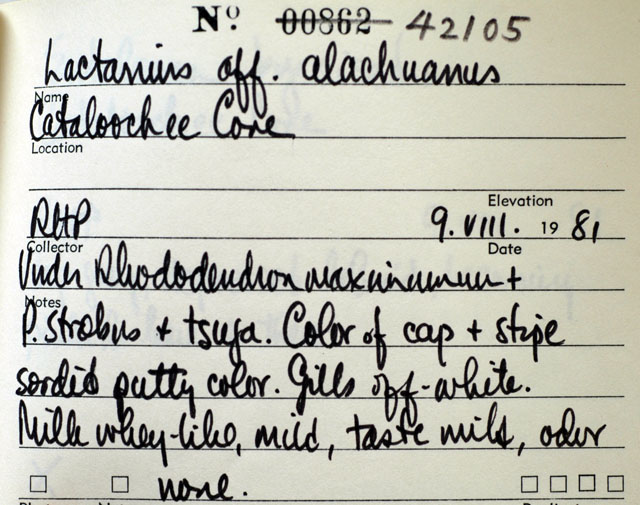 Nº 00862 42105
Lactarius aff. alachuanus
Name
Cataloochee Cove
Location
Elevation
RHP 9. VIII. 19 81
Collector Date
Under Rhododendron maximum +
Notes
P. strobus + tsuga. Color of cap + stipe
sordid putty color. Gills off-white.
Milk whey-like, mild, taste mild, odor
none.